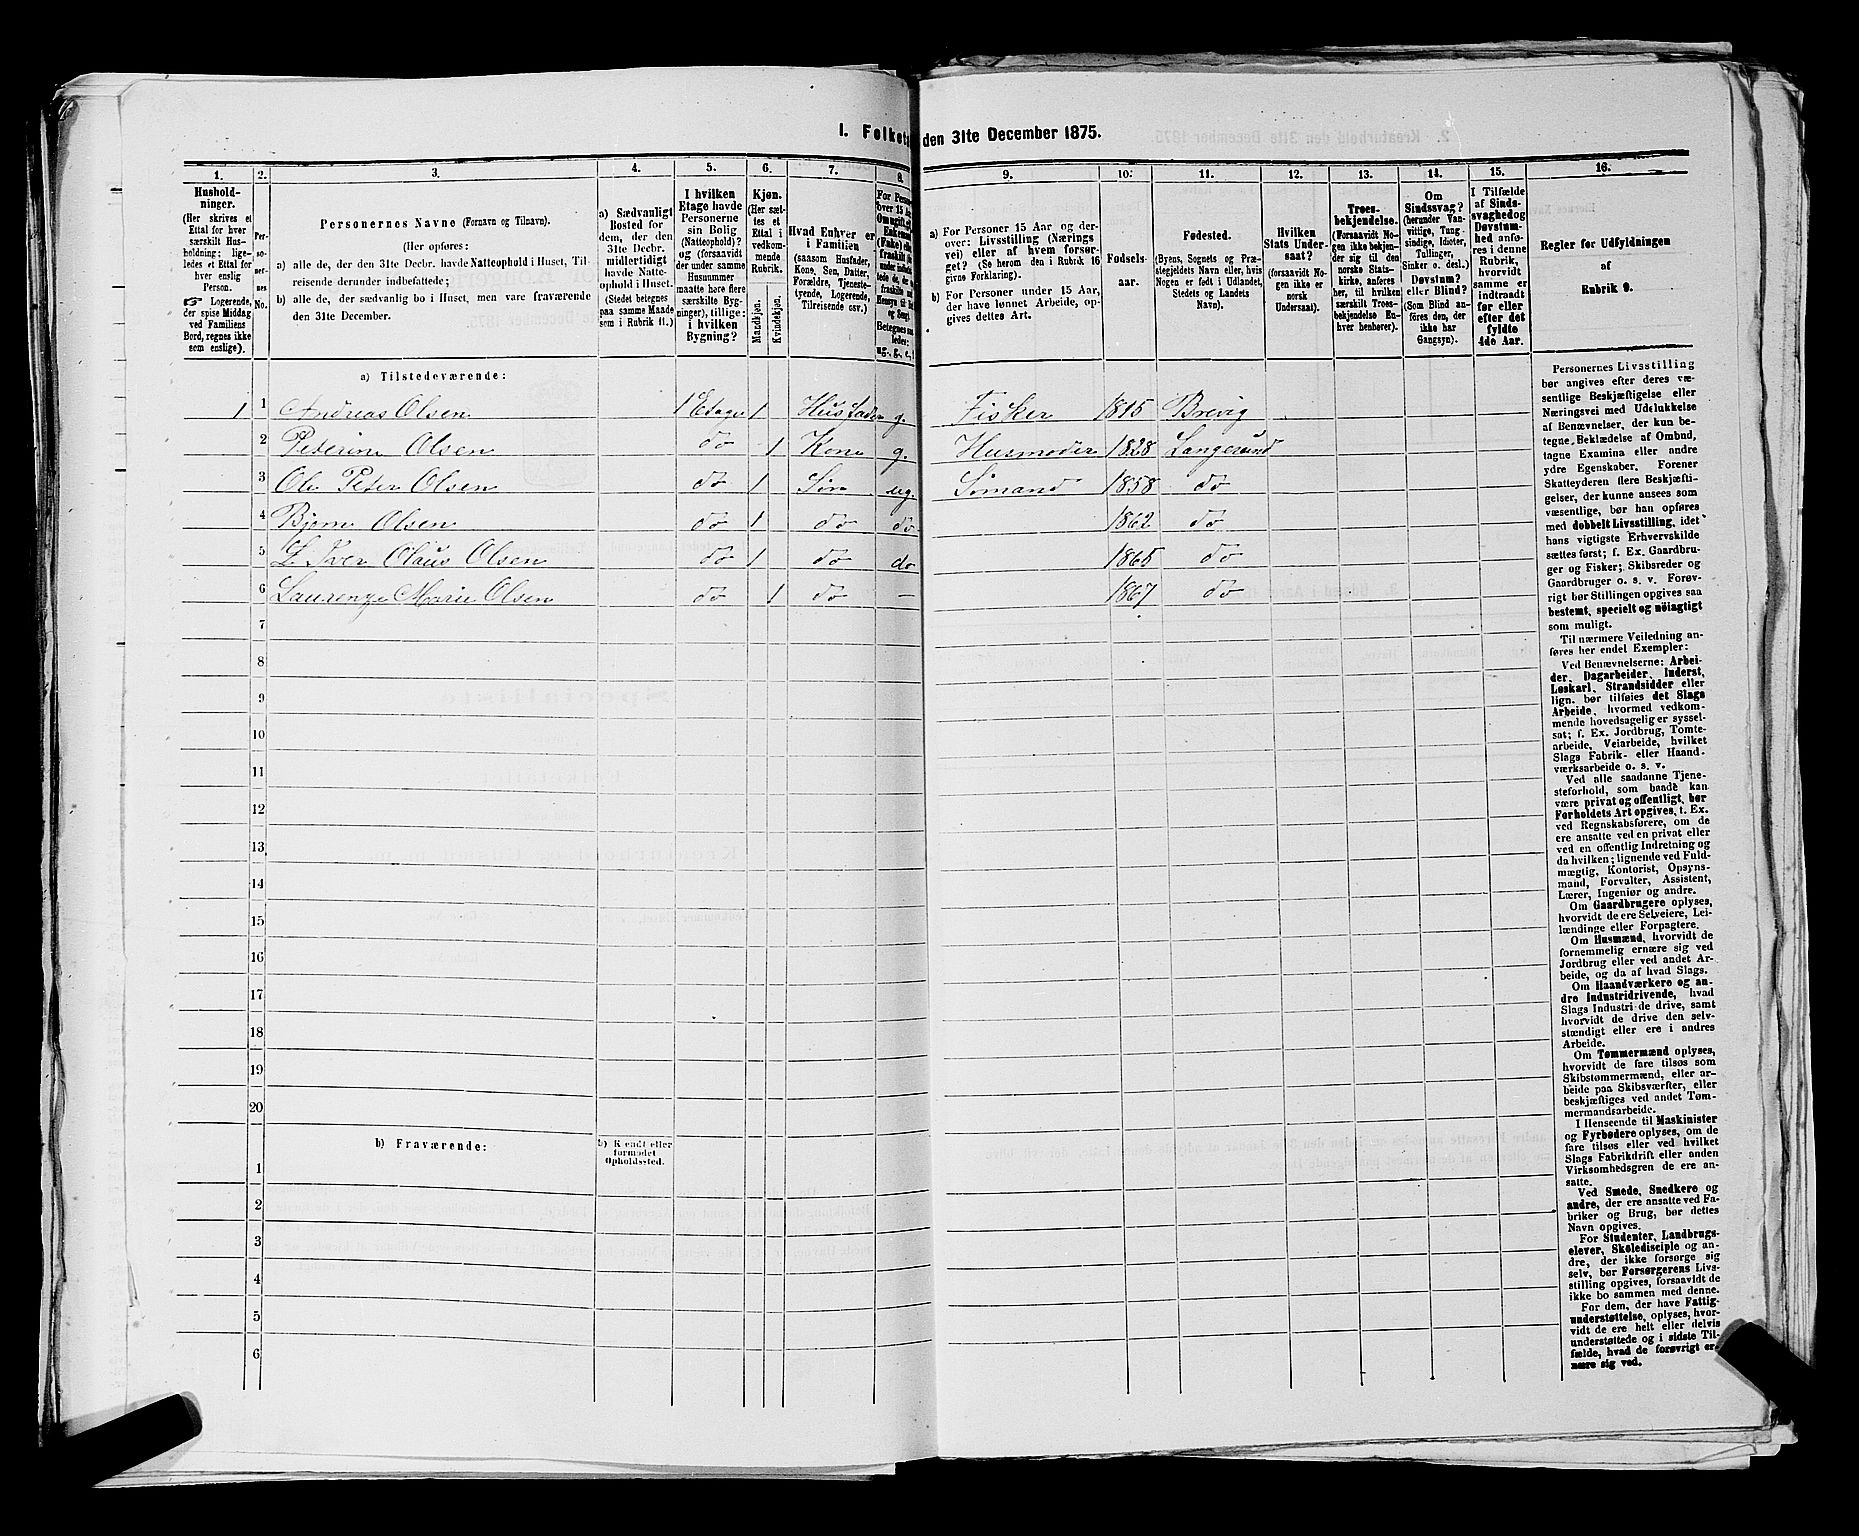 1. Folketa den 31te December 1875.
1. 2. 3. 4. 5. 6. 7. 8. 9. 10. 11. 12. 13. 14. 15. 16.
Hushold-
ninger.
(Her skrives et
Ettal for hver
særskilt Hus-
holdning; lige-
ledes et Ettal for
hver enslig
Person.
☞ Logerende,
der spise Middag
ved Familiens
Bord, regnes ikke
som enslige).
Per-
so-
ner-
nes
No.
Personernes Navne (Fornavn og Tilnavn).
(Her opføres:
a) alle de, der den 31te Decbr. havde Natteophold i Huset, Til-
reisende derunder indbefattede;
b) alle de, der sædvanlig bo i Huset, men vare fraværende
den 31te December.
a) Sædvanligt
Bosted for
dem, der den
31te Decbr.
midlertidigt
havde Natte-
ophold i Huset.
(Stedet betegnes
paa samme Maade
som i Rubrik 11.)
I hvilken
Etage havde
Personerne
sin Bolig
(Natteophold)?
og (forsaavidt
der under samme
Husnummer
maatte høre flere
særskilte Byg-
ninger), tillige:
i hvilken
Bygning?
Kjøn.
(Her sæt-
tes et
Ettal i
vedkom-
mende
Rubrik.
Mandkjøn.
Kvindekjøn.
Hvad Enhver er
i Familien
(saasom Husfader,
Kone, Søn, Datter,
Forældre, Tjeneste-
tyende, Logerende,
Tilreisende osv.)
a) For Personer 15 Aar og der-
over: Livsstilling (Nærings
vei) eller af hvem forsør-
get? (Se herom den i Rubrik 16
givne Forklaring).
b) For Personer under 15 Aar,
der have lønnet Arbeide, op-
gives dettes Art.
Fødsels-
aar.
Fødested.
(Byens, Sognets og Præ-
stegjeldets Navn eller, hvis
Nogen er født i Udlandet,
Stedets og Landets
Navn).
Hvilken
Stats Under-
saat?
(forsaavidt No-
gen ikke er
norsk
Undersaat).
Troes-
bekjendelse.
(Forsaavidt No-
gen ikke bekjen-
der sig til den
norske Stats-
kirke, anføres
her, til hvilken
særskilt Troes-
bekjendelse En-
hver henhører).
Om
Sindssvag?
(herunder Van-
vittige, Tung-
sindige, Idioter,
Tullinger,
Sinker o. desl.)
Døvstum?
eller Blind?
(Som Blind an-
føres den, der
ikke har
Gangsyn).
I Tilfælde
af Sinds-
svaghed og
Døvstum-
hed anfø-
res i denne
Rubrik,
hvorvidt
samme er
indtraadt
før eller
efter det
fyldte
4de Aar.
Regler for Udfyldningen
af
Rubrik 9.
a) Tilstedeværende:
1 1 Andreas Olsen 1 Etage 1 Husfader g. Fisker 1815 Brevig
2 Peterine Olsen do 1 Kone g. Husmoder 1828 Langesund
3 Ole Peter Olsen do 1 Søn ug. Sømand 1858 do
4 Bjørn Olsen do 1 do do 1862 do
5 L. Iver Olaus Olsen do 1 do do 1865 do
6 Laurenze Marie Olsen do 1 do — 1867 do
7
8
9
10
11
12
13
14
15
16
17
18
19
20
b) Fraværende:
b) Kjendt eller
formodet
Opholdssted.
1
2
3
4
5
6
Personernes Livsstilling
bør angives efter deres væ-
sentlige Beskjæftigelse eller
Næringsvei med Udelukkelse
af Benævnelser, der kun be-
tegne Beklædelse af Ombud,
tagne Examina eller andre
ydre Egenskaber. Forener
Skatteyderen flere Beskjæfti-
gelser, der kunne ansees som
væsentlige, bør han opføres
med dobbelt Livsstilling, idet
hans vigtigste Erhvervskilde
sættes først; f. Ex. Gaardbru-
ger og Fisker; Skibsreder og
Gaardbruger o. s. v. Forøv-
rigt bør Stillingen opgives saa
bestemt, specielt og nøiagtigt
som muligt.
Til nærmere Veiledning an-
føres her endel Exempler:
Ved Benævnelserne: Arbei-
der, Dagarbeider, Inderst,
Løskarl, Strandsidder eller
lign. bør tilføies det Slags
Arbeide, hvormed vedkom-
mende hovedsagelig er syssel-
sat; f. Ex. Jordbrug, Tomte-
arbeide, Veiarbeide, hvilket
Slags Fabrik- eller Haand-
værksarbeide o. s. v.
Ved alle saadanne Tjene-
steforhold, som baade kan
være privat og offentligt, bør
Forholdets Art opgives, t. Ex.
ved Regnskabsførere, om de
ere ansatte ved en privat eller
ved en offentlig Indretning og
da hvilken; lignende ved Fuld-
mægtig, Kontorist, Opsyns-
mand, Forvalter, Assistent,
Lærer, Ingeniør og andre.
Om Gaardbrugere oplyses,
hvorvidt de ere Selveiere, Lei-
lændinge eller Forpagtere.
Om Husmænd, hvorvidt de
fornemmelig ernære sig ved
Jordbrug eller ved andet Ar-
beide, og da af hvad Slags.
Om Haandværkere og an-
dre Industridrivende, hvad
Slags Industri de drive, samt
hvorvidt de drive den selv-
stændigt eller ere i andres
Arbeide.
Om Tømmermænd oplyses,
hvorvidt de fare tilsøs som
Skibstømmermænd, eller ar-
beide paa Skibsværfter, eller
beskjæftiges ved andet Tøm-
mermandsarbeide.
I Henseende til Maskinister
og Fyrbødere oplyses, om de
fare tilsøs eller ved hvilket
Slags Fabrikdrift eller anden
Virksomhedsgren de ere an-
satte.
Ved Smede, Snedkere og
andre, der ere ansatte ved Fa-
briker og Brug, bør dettes
Navn opgives.
For Studenter, Landbrugs-
elever, Skoledisciple og an-
dre, der ikke forsørge sig
selv, bør Forsørgerens Livs-
stilling opgives, forsaavidt de
ikke bo sammen med denne.
For dem, der have Fattig-
understøttelse, oplyses, hvor-
vidt de ere helt eller delvis
understøttede og i sidste Til-
fælde, hvad de forøvrigt er-
nære sig ved.